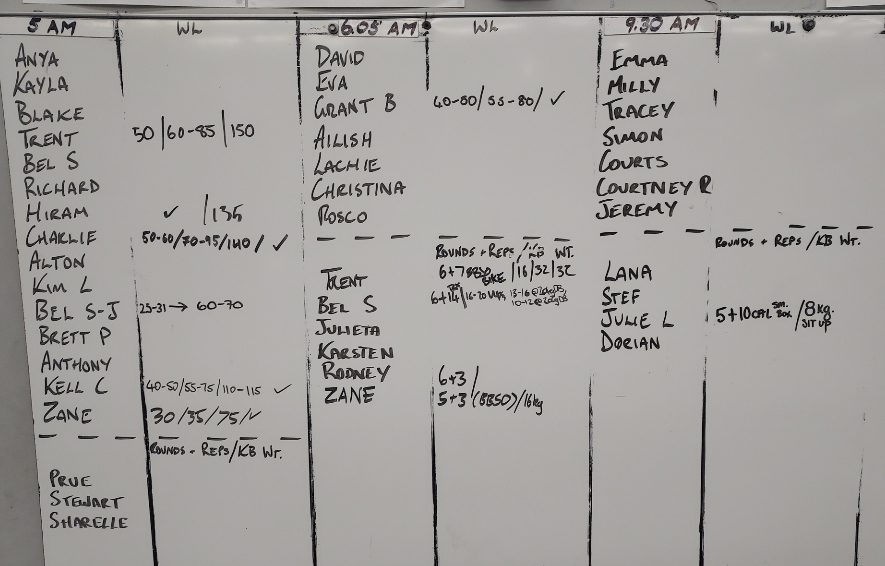 5 AM WL
ANYA
KAYLA
BLAKE
TRENT 50/60-85/150
BEL S
RICHARD
HIRAM ✓ /135
CHARLIE 50-60/70-95/140/ ✓
ALTON
KIM L
BEL S-J 25-31 → 60-70
BRETT P
ANTHONY
KELL C 40-50/55-75/110-115 ✓
ZANE 30/35/75/✓
ROUNDS + REPS/KB WT.
PRUE
STEWART
SHARELLE
6.05 AM WL
DAVID
EVA
GRANT B 40-50/55-80/ ✓
AILISH
LACHIE
CHRISTINA
ROSCO
ROUNDS + REPS/ WT.
TRENT 6+7 BIKE /16/32/32
BEL S 6+14/16-20
JULIETA
KARSTEN
RODNEY 6+3/
ZANE 5+3 (BBSO)/16kg
9.30 AM WL
EMMA
MILLY
TRACEY
SIMON
COURTS
COURTNEY R
JEREMY
ROUNDS + REPS/KB WT.
LANA
STEF
JULIE L 5+10CAL SM. BOX /8kg. SIT UP
DORIAN